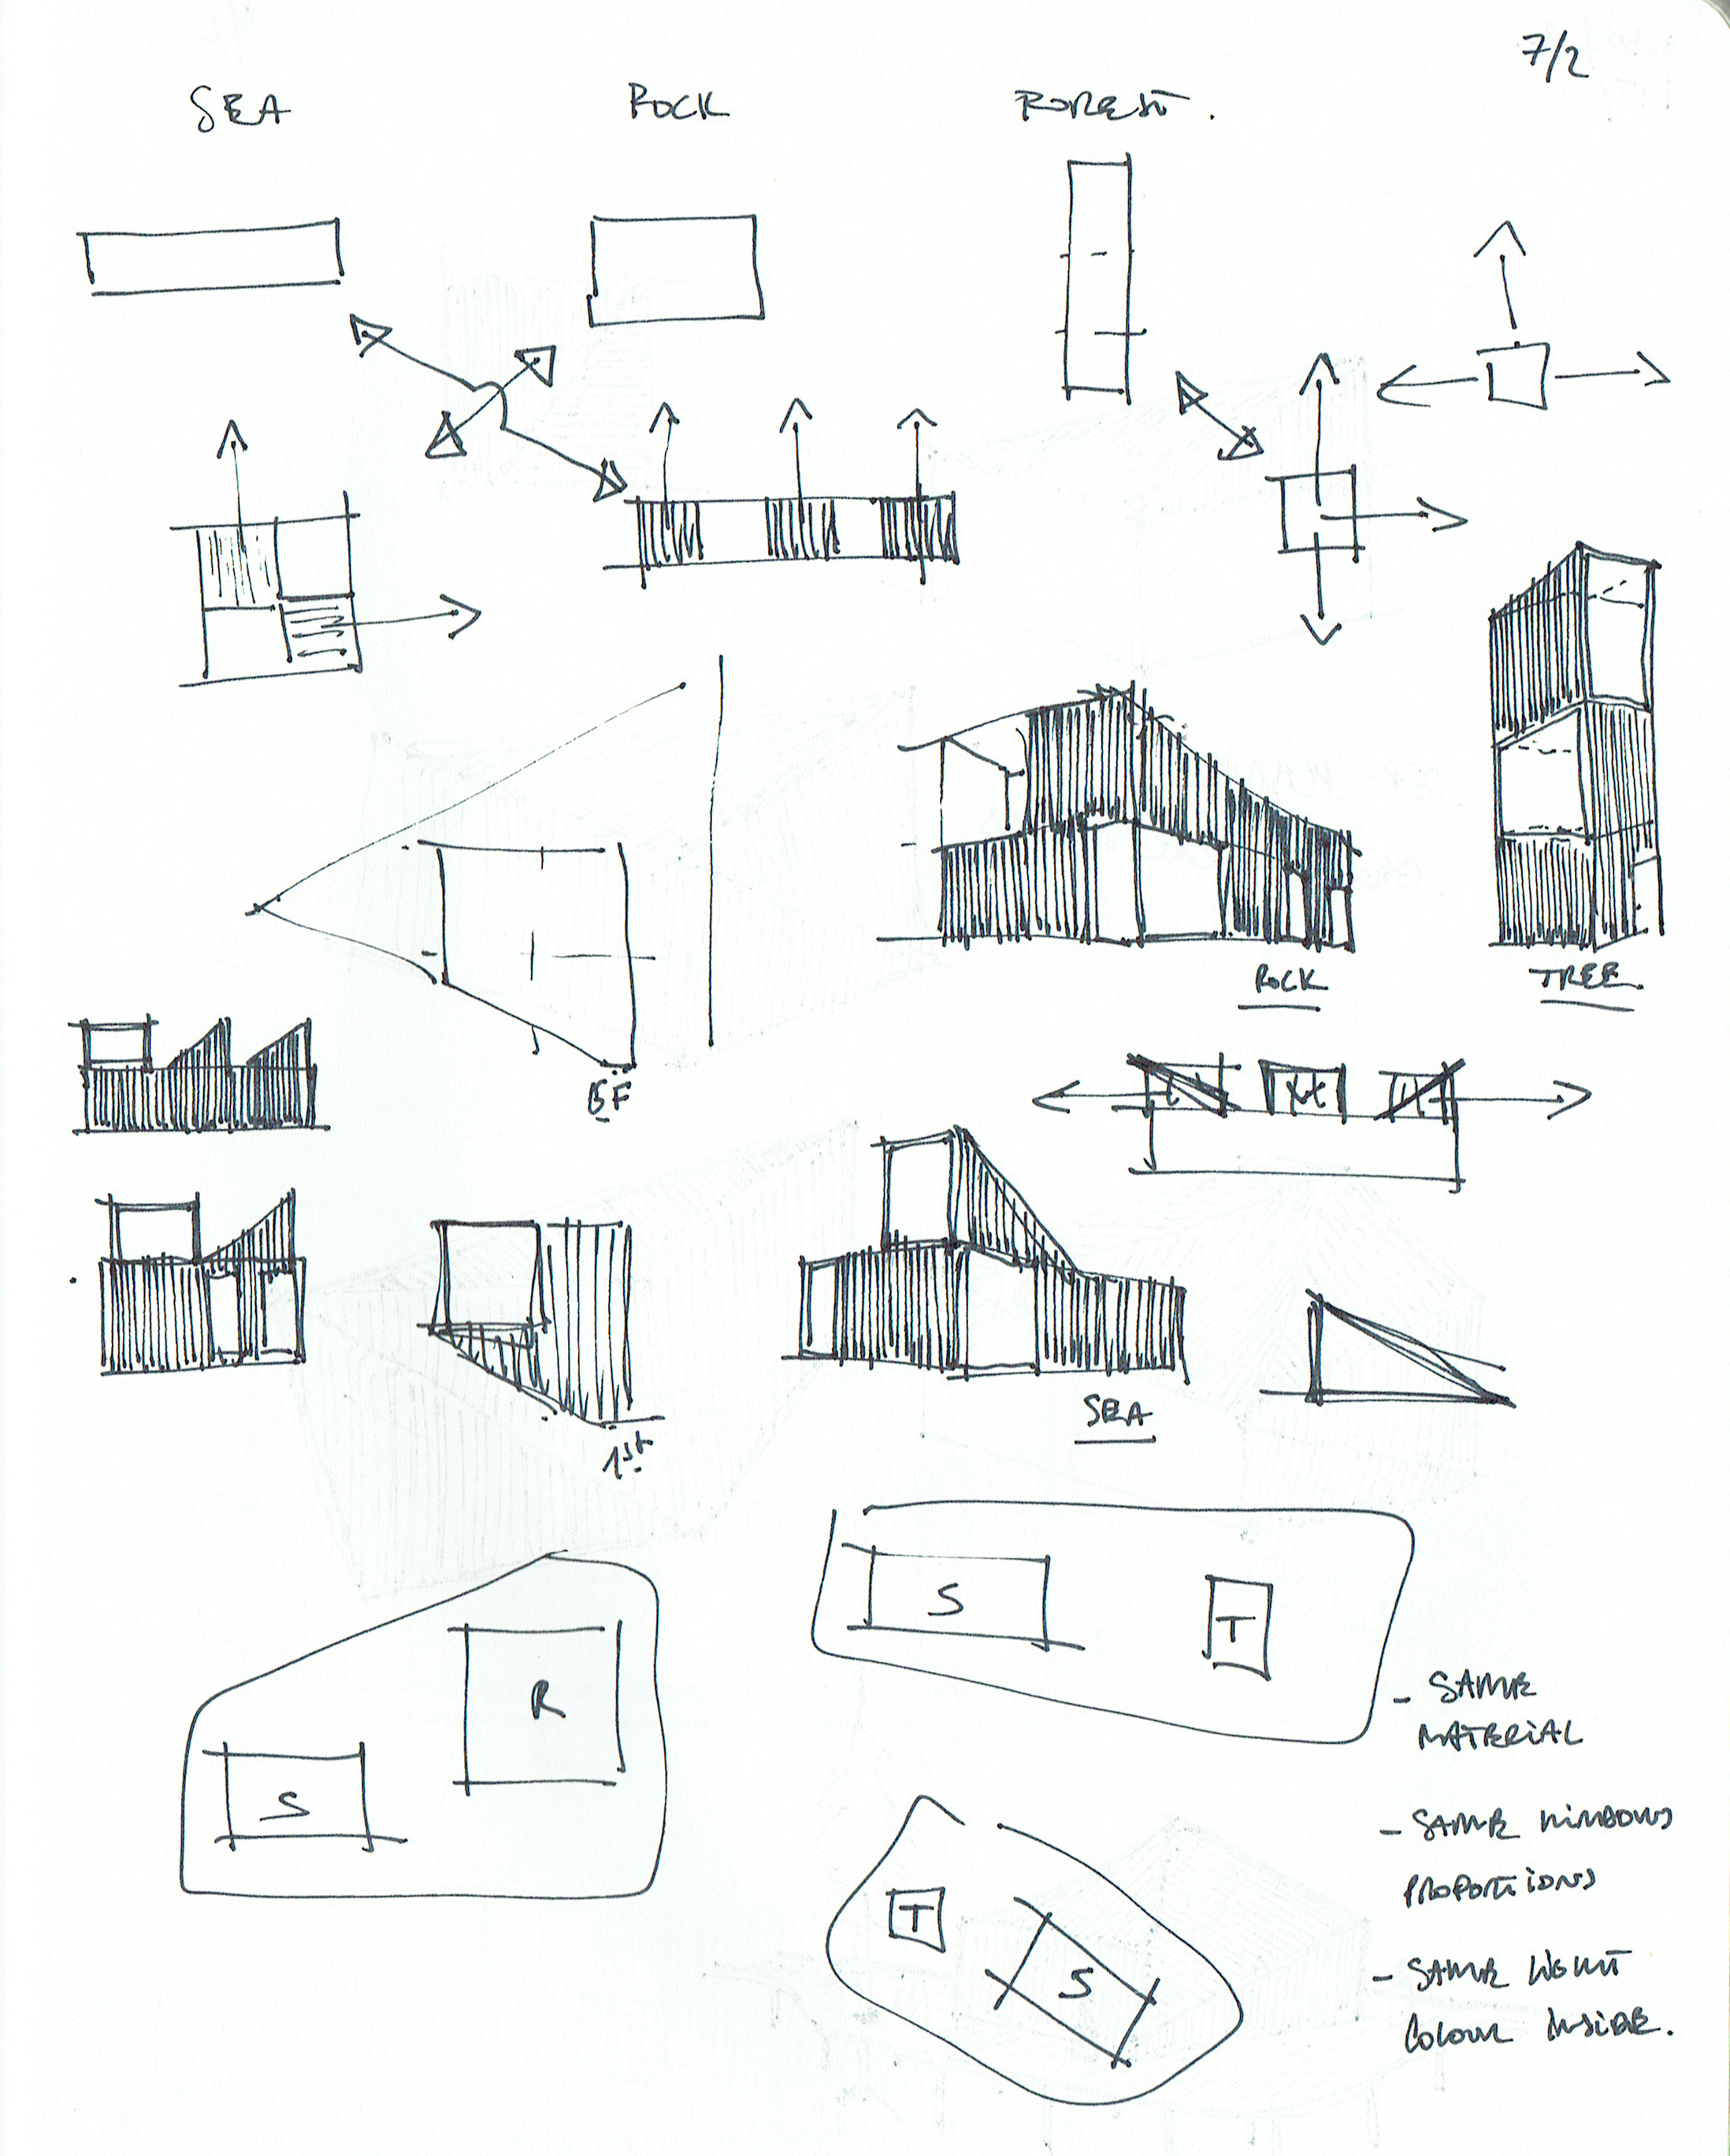 7/2
SEA
ROCK
FOREST.
ROCK
TREE.
GF
SEA
1st
S
T
R
S
- SAME
MATERIAL
T
S
- SAME WINDOWS
PROPORTIONS
- SAME LIGHT
COLOUR INSIDE.